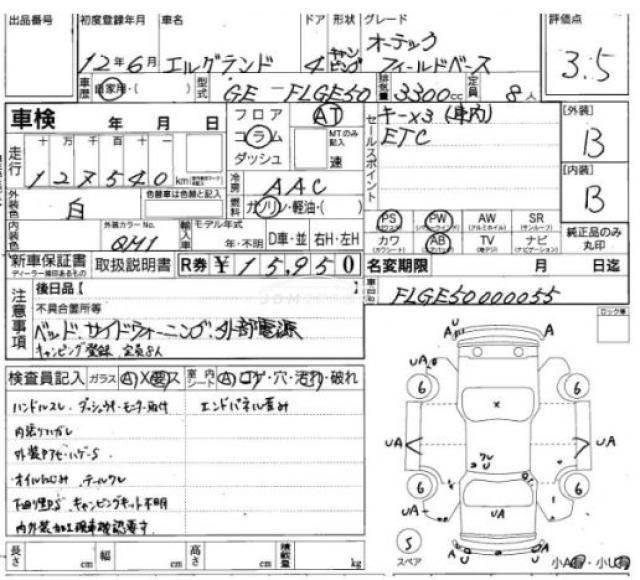 出品番号 初度登録年月 車名 ドア 形状 グレード 評価点
12年6月 エルグランド 4 キャンピング オーテック フィールドベース 3.5
車歴 自家用・( ) 型式 GE-FLGE50 排気量 3300cc 定員 8人
車検 年 月 日 フロア コラム ダッシュ AT MTのみ記入 速
セールスポイント キー×3(車内)
ETC
[外装] B
走行 十 万 千 百 十 一
127540 km
冷房 AAC
[内装] B
外装色 白 色替車は色替と記入 燃料 ガソリン・軽油・( )
PS PW AW SR
内装色 外装カラーNo. QM1 輸入車 モデル年式 年・不明 D車・並 右H・左H
カワ AB TV ナビ 純正品のみ丸印
新車保証書 取扱説明書 R券 ¥15,950 名変期限 月 日迄
ディーラー捺印あるもの
後日品【 】
車台No. FLGE50000055
注意事項 不具合箇所等
ベッド、サイドウォーニング、外部電源
キャンピング登録、定員8人
ロック番
検査員記入 ガラス A X 要 ス 室内シート A コゲ・穴・汚れ・破れ
ハンドルスレ ダッシュ エンドパネル歪み
内張りハガレ
外装
オイルにじみ テールワレ
下回り キャンピングキット不明
内外装 現車確認要す
長さ cm 幅 cm 高さ cm 積載量 kg
U A A
UA
6 6
X
UA UA
ワレ U
6 6
UA UA
S スペア
A U U A
小A・小U